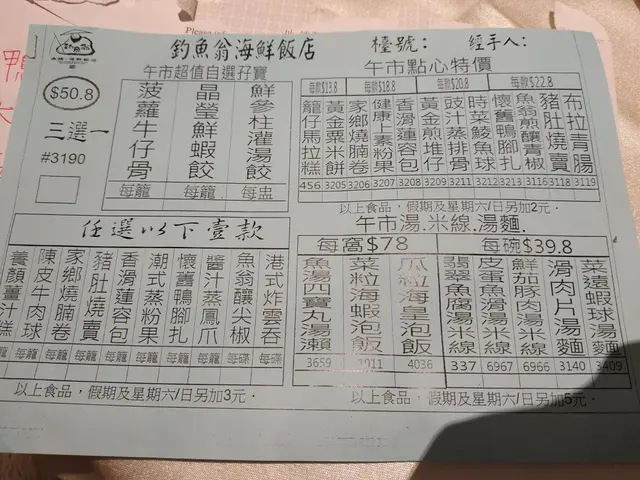 釣魚翁海鮮飯店
檯號：
經手人：
午市超值自選孖寶
$50.8
三選一
#3190
菠蘿牛仔骨
每籠
晶瑩鮮蝦餃
每籠
鮮參柱灌湯餃
每盅
任選以下壹款
養顏薑汁糕
陳皮牛肉球
每籠
家鄉燒腩卷
每籠
豬肚燒賣
每籠
香滑蓮容包
每籠
潮式蒸粉果
每籠
懷舊鴨腳扎
每籠
醬汁蒸鳳爪
每籠
魚翁釀尖椒
每碟
港式炸雲吞
每碟
以上食品，假期及星期六/日另加3元．
午市點心特價
每款$13.8
每款$18.8
每款$20.8
每款$22.8
籠仔馬拉糕
456
黃金粟米餅
3205
家鄉燒腩卷
3206
健康上素粉果
3207
香滑蓮容包
3208
黃金煎堆仔
3209
豉汁蒸排骨
3211
時菜鯪魚球
3212
懷舊鴨腳扎
3213
魚翁煎釀青椒
3116
豬肚燒賣
3118
布拉青腸
3119
以上食品，假期及星期六/日另加2元．
午市湯．米線．湯麵．
每窩$78
每碗$39.8
魚湯四寶丸湯瀨
3659
菜粒海蝦泡飯
瓜粒海皇泡飯
4036
翡翠魚腐湯米線
337
皮蛋魚滑湯米線
6967
鮮茄豚肉湯米線
6966
滑肉片湯麵
3140
菜遠蝦球湯麵
3409
以上食品，假期及星期六/日另加5元．